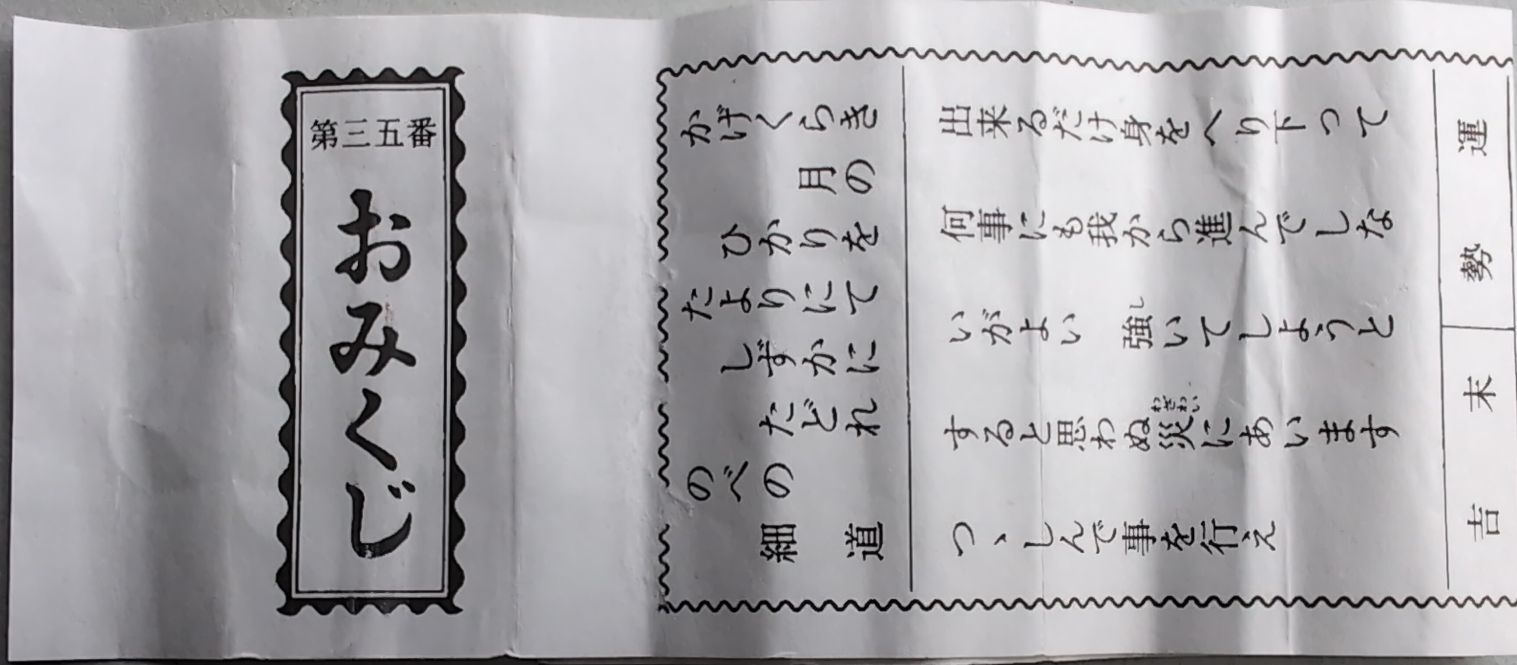 第三五番
おみくじ
かげくらき
月の
ひかりを
たよりにて
しずかに
たどれ
のべの
細道
出来るだけ身をへり下つて
何事にも我から進んでしな
いがよい　強いてしようと
すると思わぬ災にあいます
つゝしんで事を行え
運勢
末吉